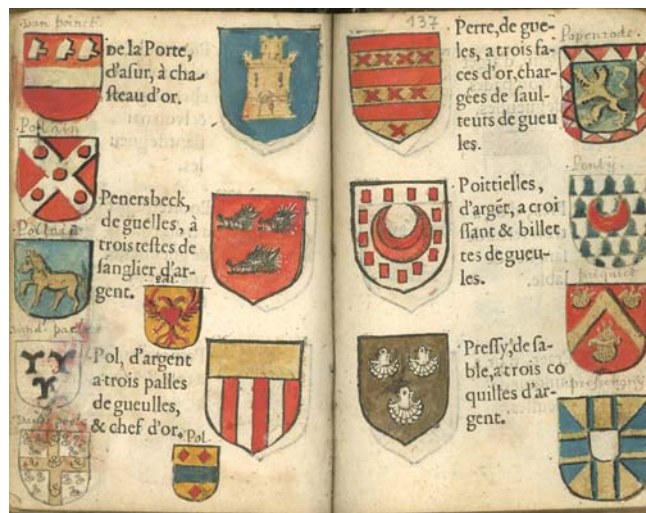 van princt
De la Porte,
d'asur, à cha-
steau d'or.
Pollain
Penersbeck,
de guelles, à
trois testes de
sanglier d'ar-
gent.
Pol, d'argent
a trois palles
de gueulles,
& chef d'or.
Pol.
137
Perre, de gue-
les, a trois fa-
ces d'or, char-
gées de faul-
teurs de gueu
les.
Poittielles,
d'argēt, a croi
ssant & billet
tes de gueu-
les.
Pressy, de sa-
ble, a trois co
quilles d'ar-
gent.
Popenrode.